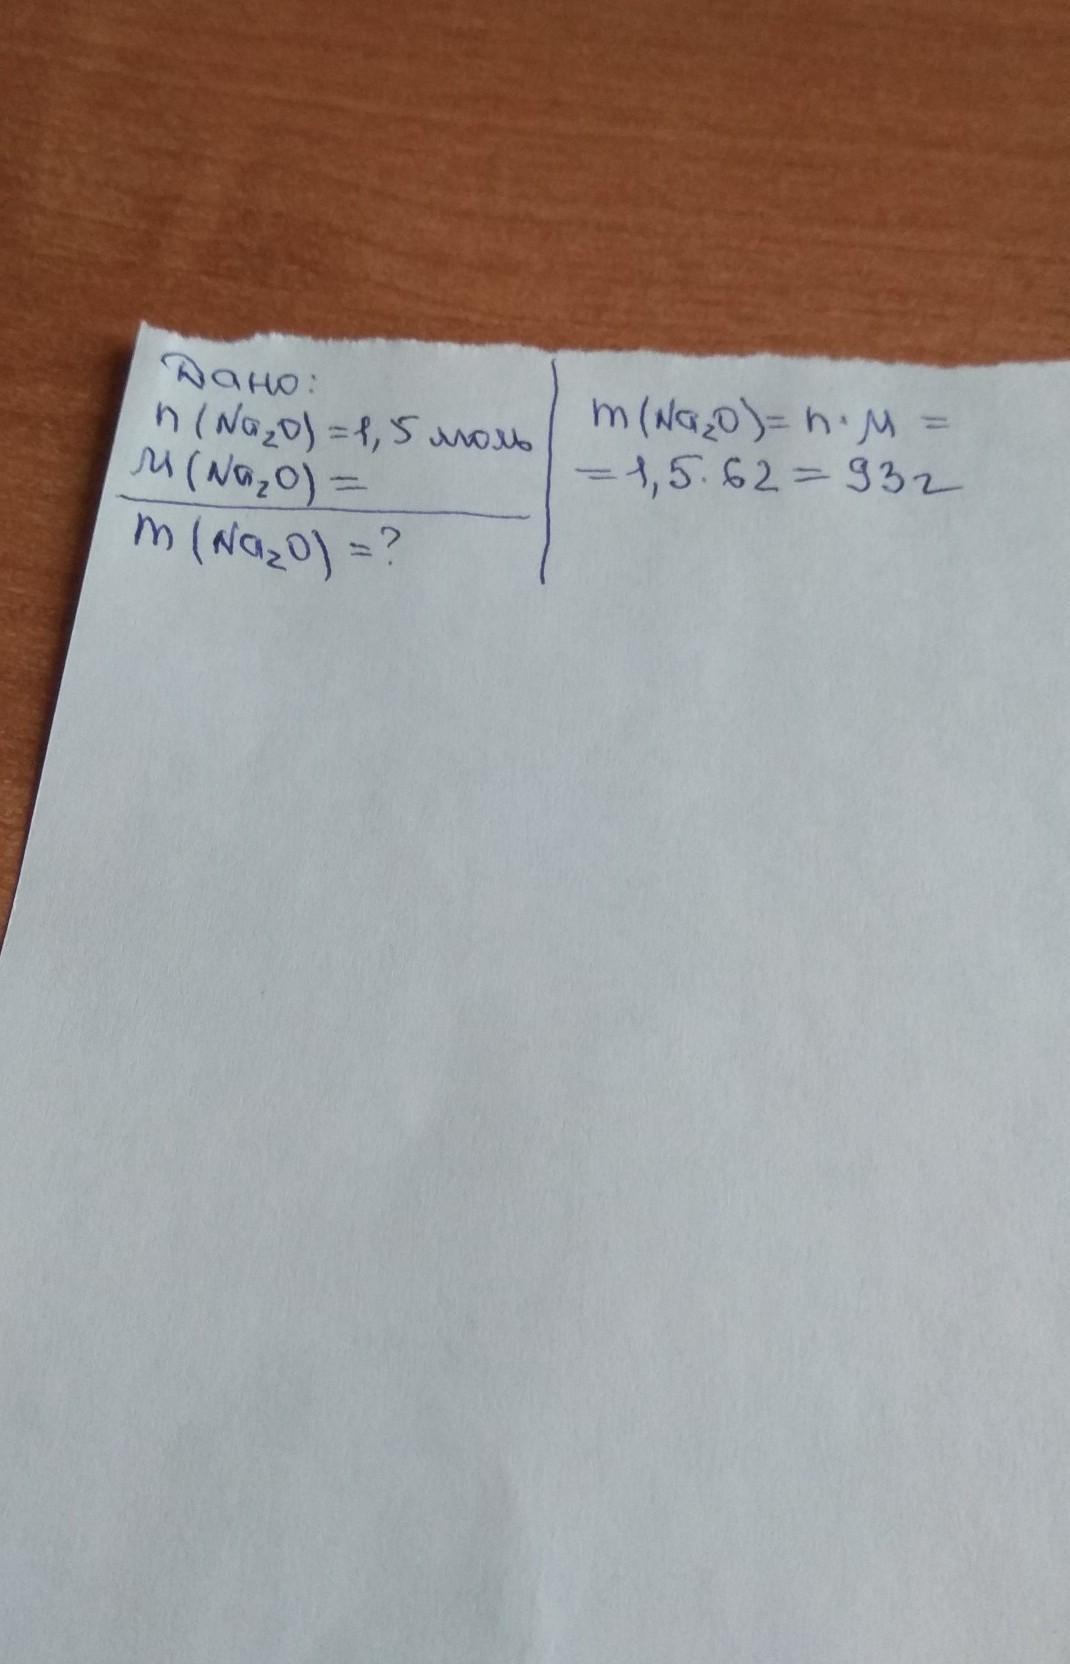 Дано:
n(Na₂O)=1,5 моль
M(Na₂O)=
m(Na₂O)=?
m(Na₂O)=n·M=
=1,5·62=93г